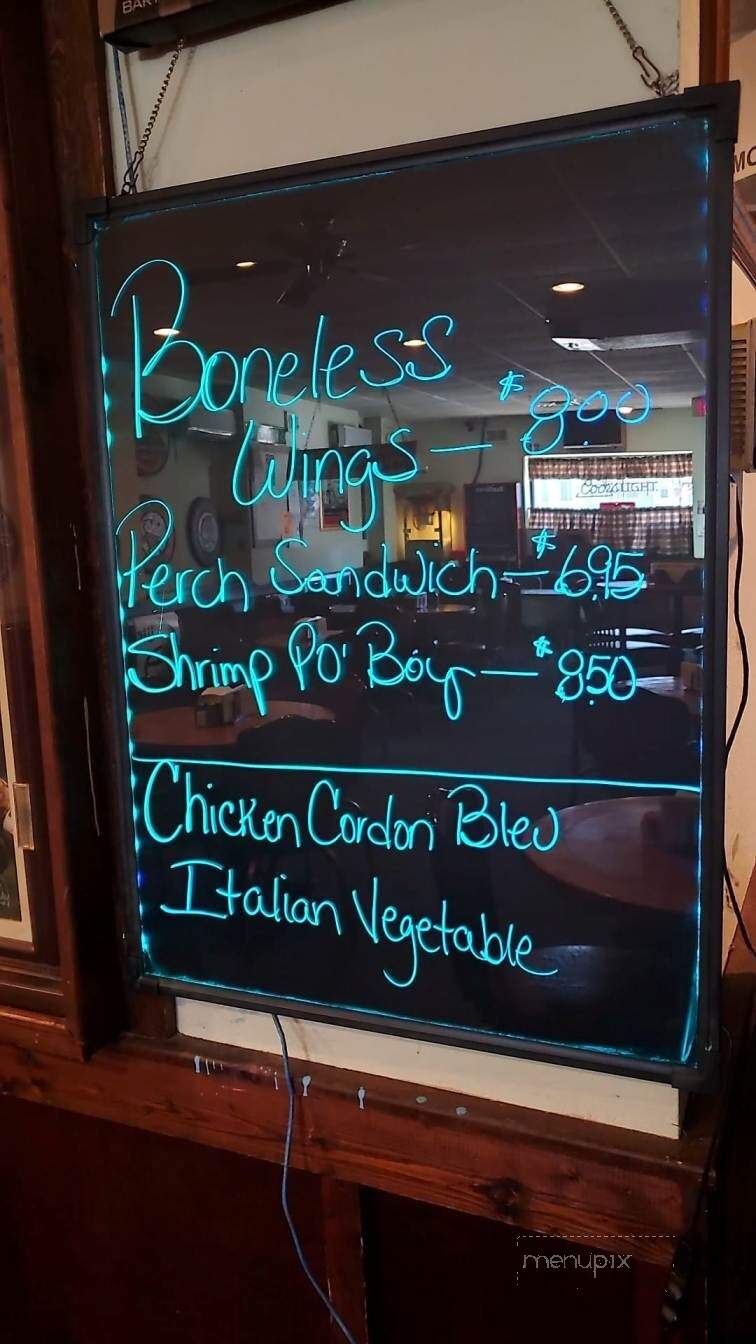 BAR
MO
Boneless
Wings — $8.00
COORS LIGHT
Perch Sandwich — $6.95
Shrimp Po' Boy — $8.50
Chicken Cordon Bleu
Italian Vegetable
menupix